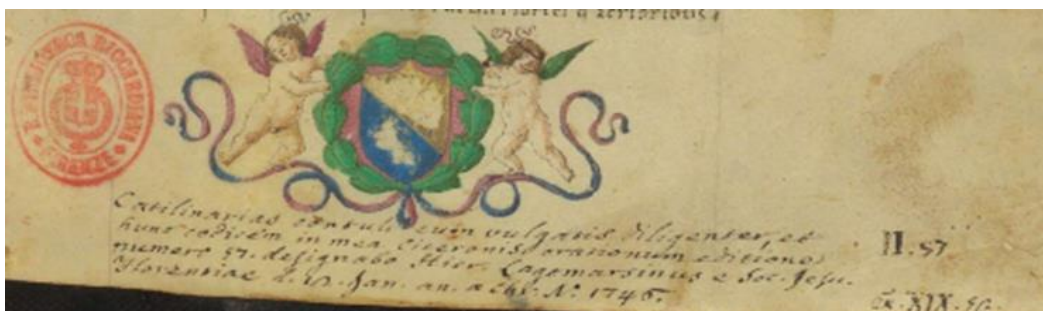 R. BIBLIOTECA RICCARDIANA
FIRENZE
Catilinarias contuli cum vulgatis diligenter, et
hunc codicem in mea Ciceronis orationum editione
numero 57. designabo Hier. Lagomarsinus e Soc. Jesu.
Florentiae d. Jan. an. a Chr. N. 1746.
II. 57
XIX.